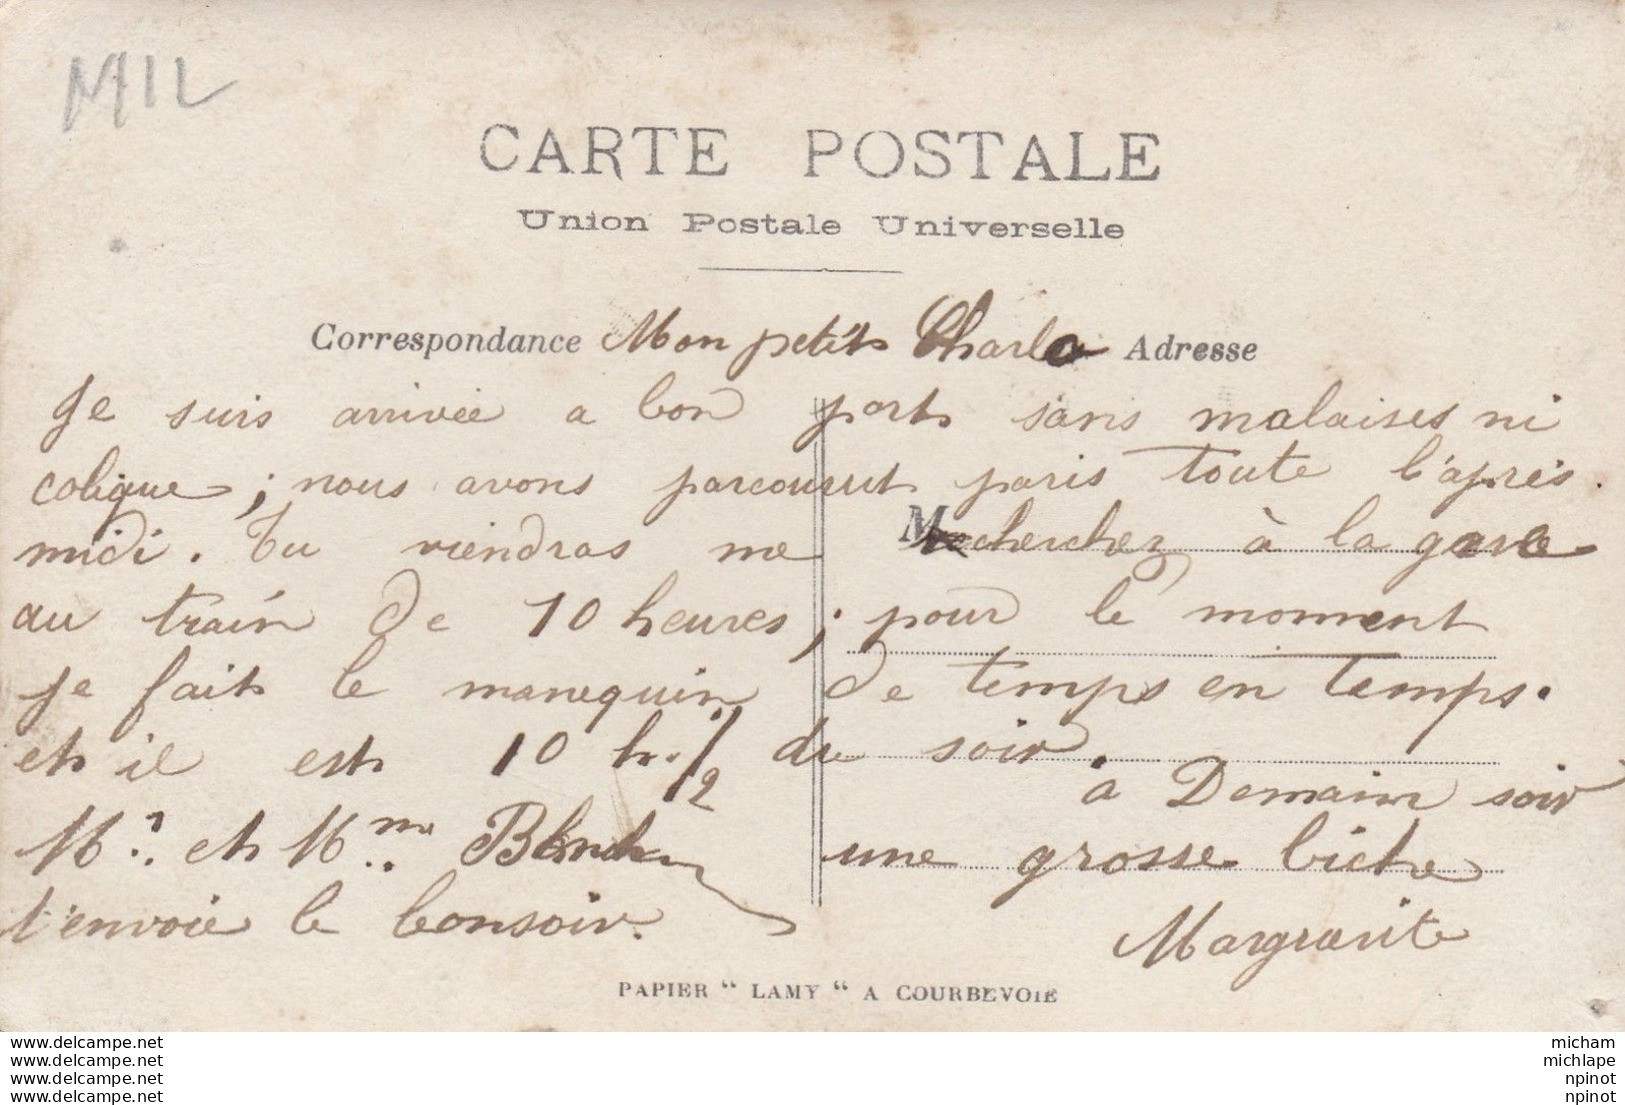 MIL
CARTE POSTALE
Union Postale Universelle
Correspondance Mon petit Charlo Adresse
Je suis arrivée a bon port sans malaises ni
colique ; nous avons parcourut paris toute l'après
midi. Tu viendras me M cherchez à la gare
au train de 10 heures ; pour le moment
je fait le manequin de temps en temps.
et il est 10 h. 1/2 du soir.
a Demain soir
Mr. et Mme.
une grosse biche
t'envoie le bonsoir.
Margrarite
PAPIER " LAMY " A COURBEVOIE
www.delcampe.net
www.delcampe.net
www.delcampe.net
www.delcampe.net
micham
michlape
npinot
npinot